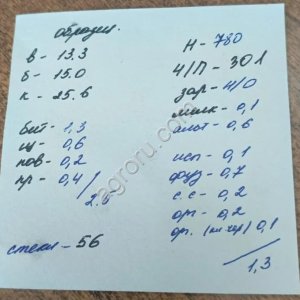 образец.
в - 13.3
б - 15.0
к - 25.6
бит - 1,3
щ - 0,6
пов - 0,2
пр - 0,4
2.6
стекл - 56
Н - 780
Ч/П - 301
зар - н/о
мик - 0,1
альт - 0,6
исп - 0,1
фуз - 0,7
с.с - 0,2
ор - 0,2
ор. 0,1
1,3
agroru.com